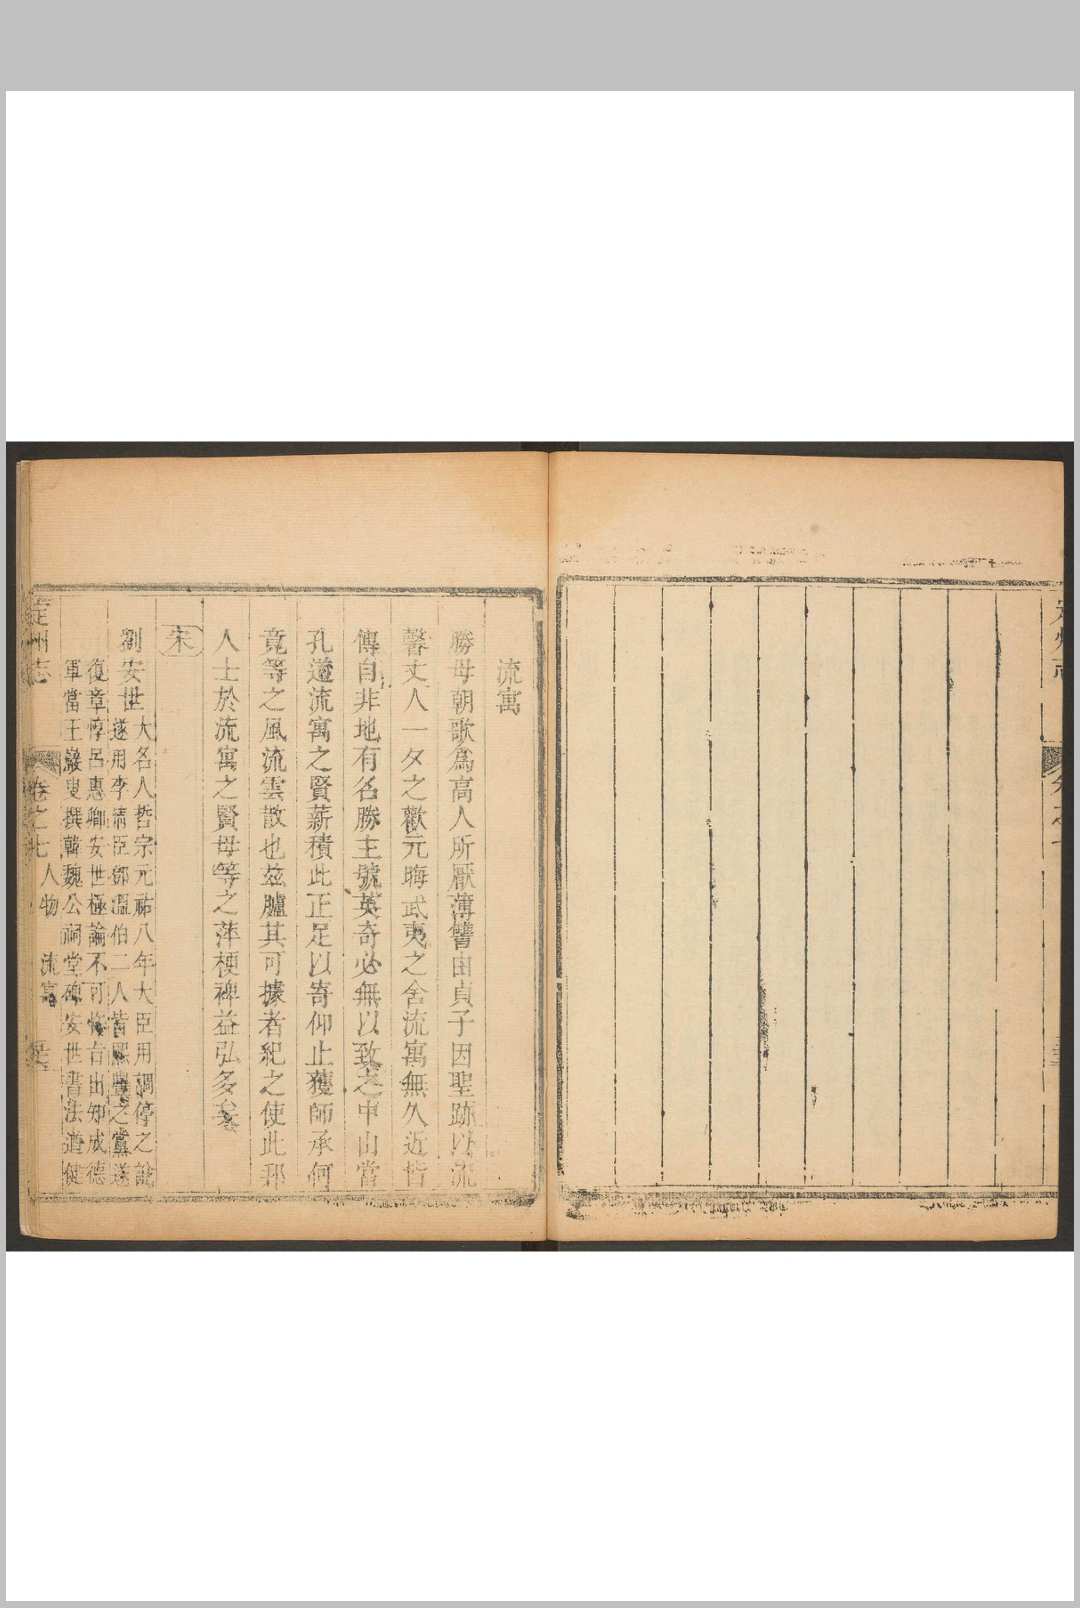 流寓
勝母朝歌爲高人所厭薄讐由貞子因聖跡以流
馨丈人一夕之歡元晦武夷之舍流寓無久近皆
傳自非地有名勝主號英奇必無以致之中山當
孔道流寓之賢薪積此正足以寄仰止獲師承何
竟等之風流雲散也茲臚其可據者紀之使此邦
人士於流寓之賢毋等之萍梗裨益弘多矣
宋
劉安世 大名人哲宗元祐八年大臣用調停之說
遂用李清臣鄧溫伯二人皆熙豐之黨遂
復章惇呂惠卿安世極論不可 出知成德
軍當王巖叟撰韓魏公祠堂碑安世書法遒健
定州志 卷之七 人物 流寓